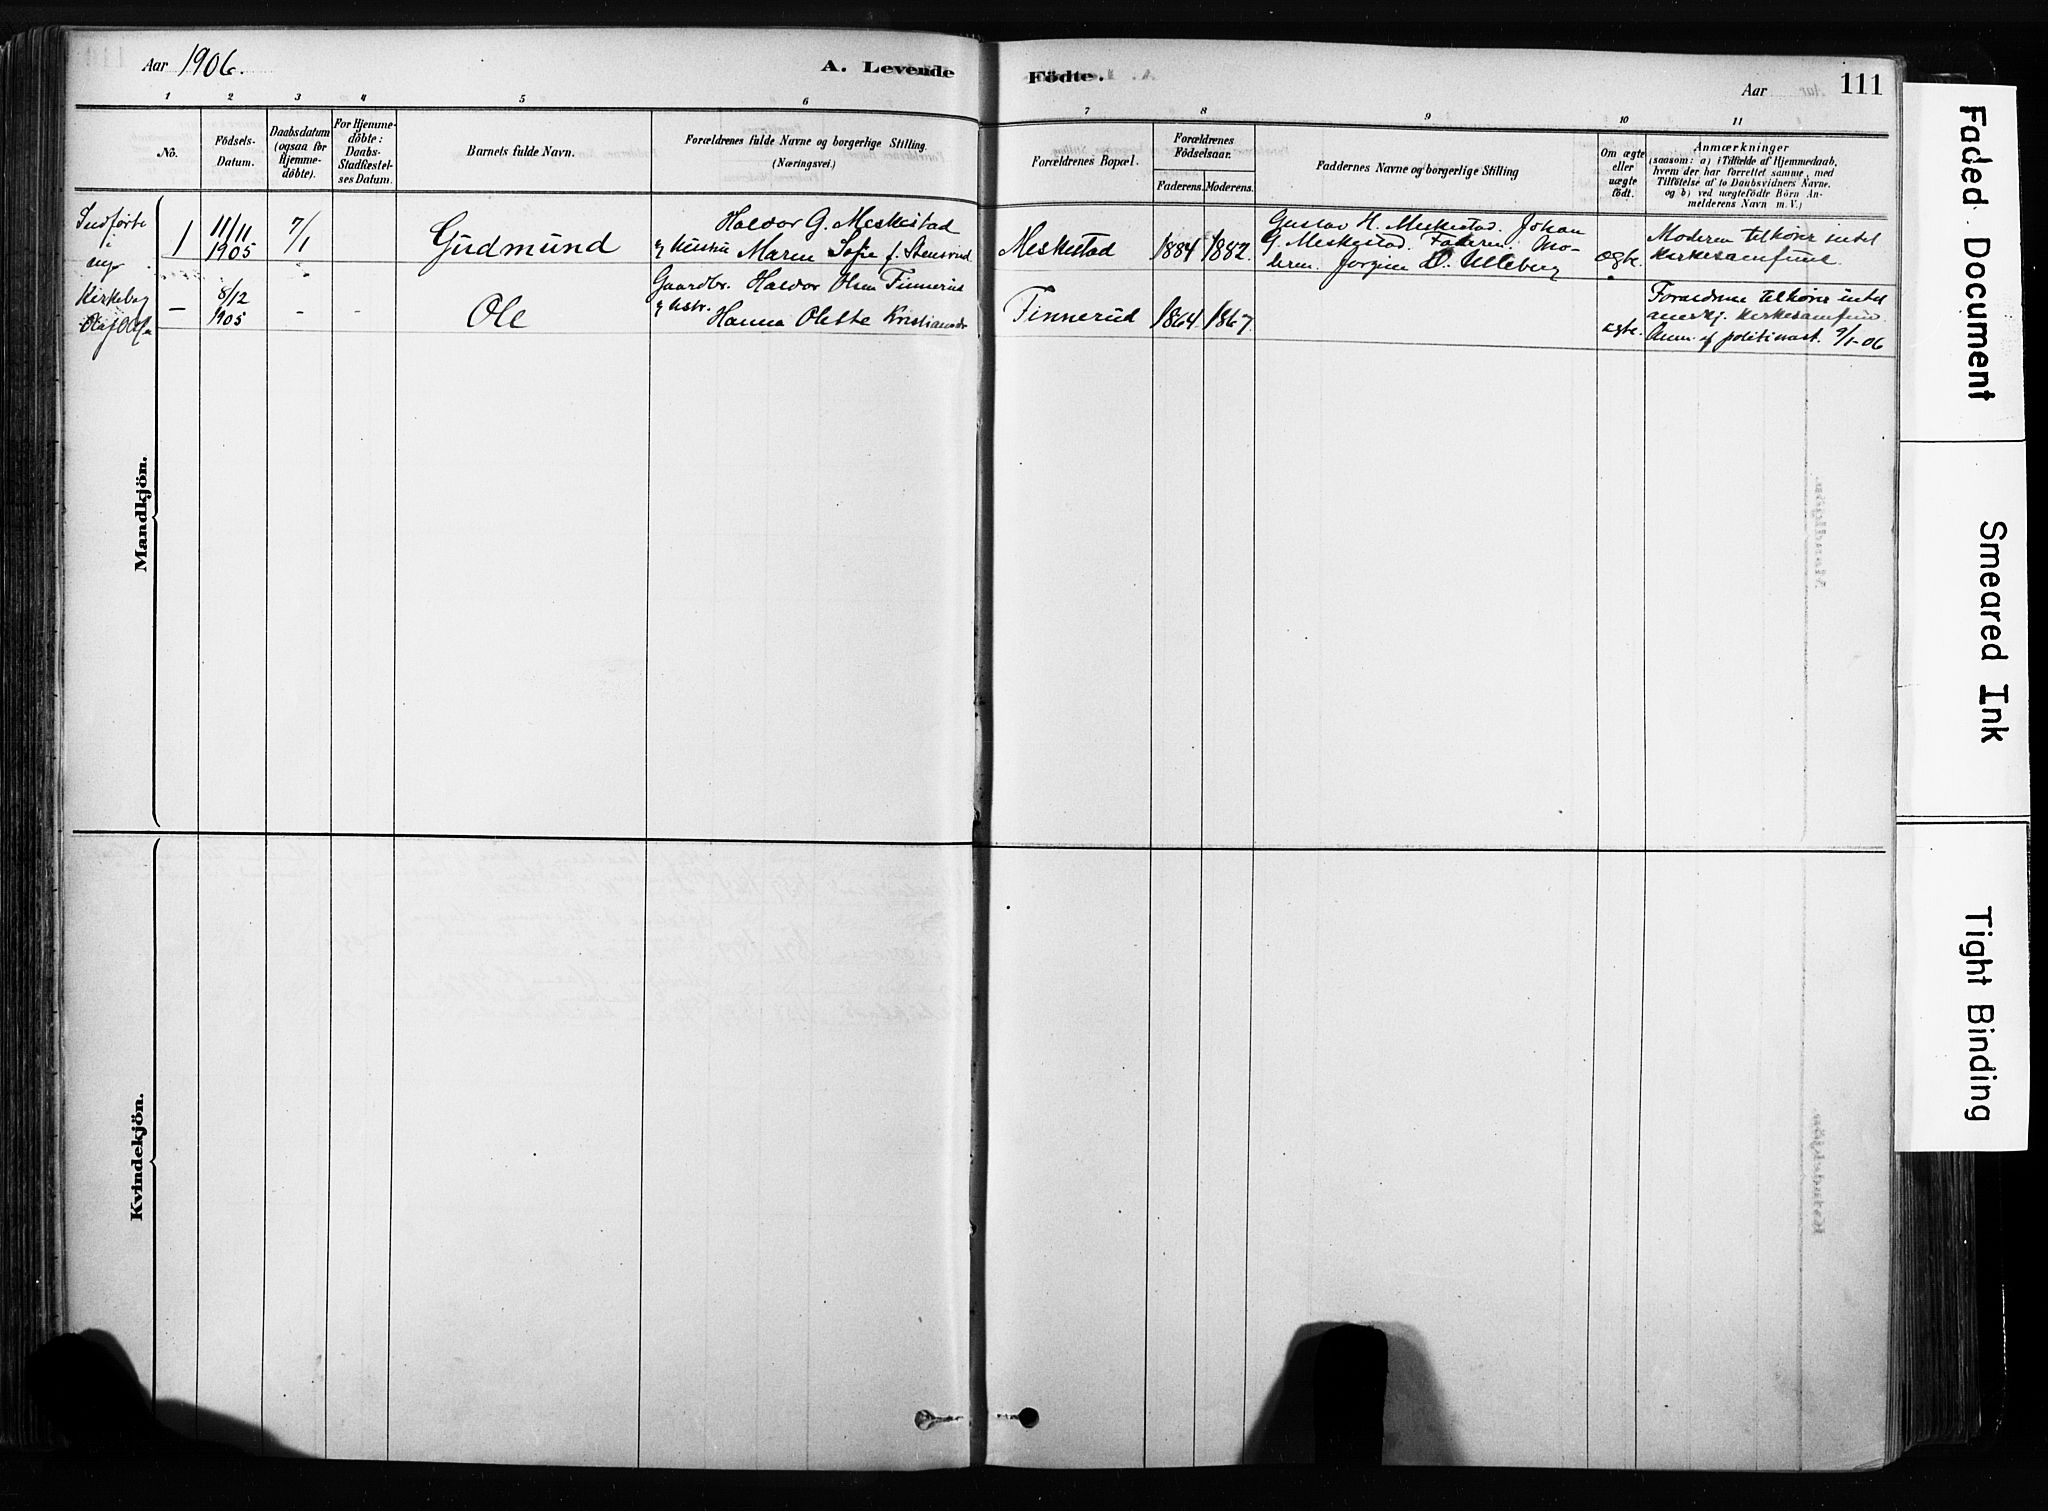 Aar 1906.
A. Levende
Födte.
Aar
111
1 2 3 4 5 6 7 8 9 10 11
No.
Födsels-
Datum.
Daabsdatum
(ogsaa for
Hjemme-
döbte).
For Hjemme-
döbte:
Daabs-
Stadfæstel-
ses Datum.
Barnets fulde Navn.
Forældrenes fulde Navne og borgerlige Stilling.
(Næringsvei.)
Forældrenes Bopæl.
Forældrenes
Födselsaar.
Faderens. Moderens.
Faddernes Navne og borgerlige Stilling
Om ægte
eller
uægte
födt.
Anmærkninger
(saasom: a) i Tilfælde af Hjemmedaab,
hvem der har forrettet samme, med
Tilföielse af to Daabsvidners Navne.
og b) ved uægtefödte Börn An-
melderens Navn m. V.)
Indförte
i
nye
Kirkebog
1
11/11
1905
7/1
Gudmund
Haldor G. Meskestad
Maren Sofie f. Stensrud
Meskestad
1884 1882.
Gustav H. Meskestad. Johan
G. Meskestad. Faderen. Mo-
deren. Jorgine D. Ulleberg
ægte.
Moderen tilhörer intet
kirkesamfund.
–
8/12
1905
-
-
Ole
Gaardbr. Haldor Olsen Finnerud
Hanna Olette Kristiansdr
Finnerud
1864. 1867.
ægte.
Forældrene tilhörer intet
anerkj. kirkesamfund.
Anm. af politimest. 9/1-06
Mandkjön.
Kvindekjön.
Faded Document
Smeared Ink
Tight Binding